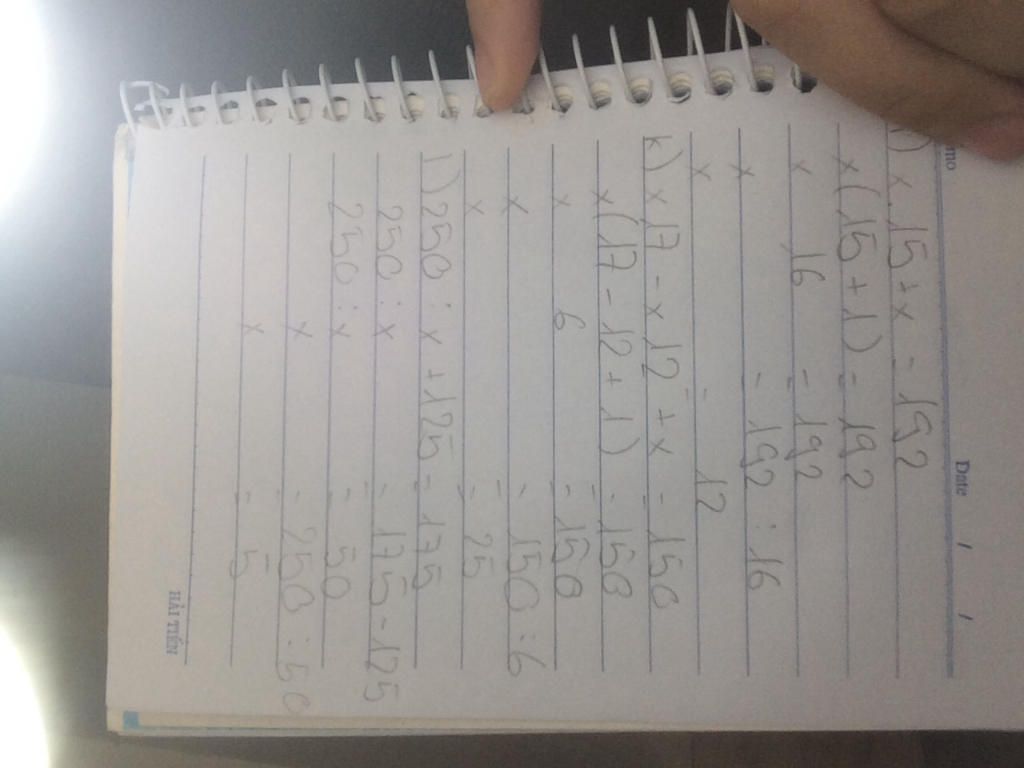 mo Date / /
x.15+x = 192
x(15+1) = 192
x 16 = 192
x = 192 : 16
x = 12
k) x 17 - x 12 + x = 150
x(17 - 12 + 1) = 150
x 6 = 150
x = 150 : 6
x = 25
l) 250 : x + 125 = 175
250 : x = 175 - 125
250 : x = 50
x = 250 : 50
x = 5
HẢI TIẾN